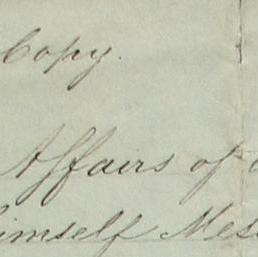 Copy.
Affairs of
himself Mes